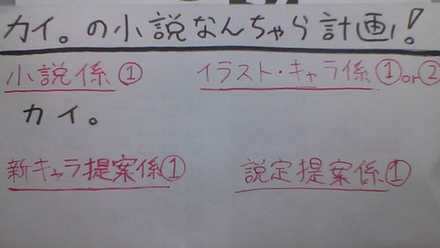 カイ。の小説なんちゃら計画!
小説係①
イラスト・キャラ係①or②
カイ。
新キャラ提案係①
説定提案係①